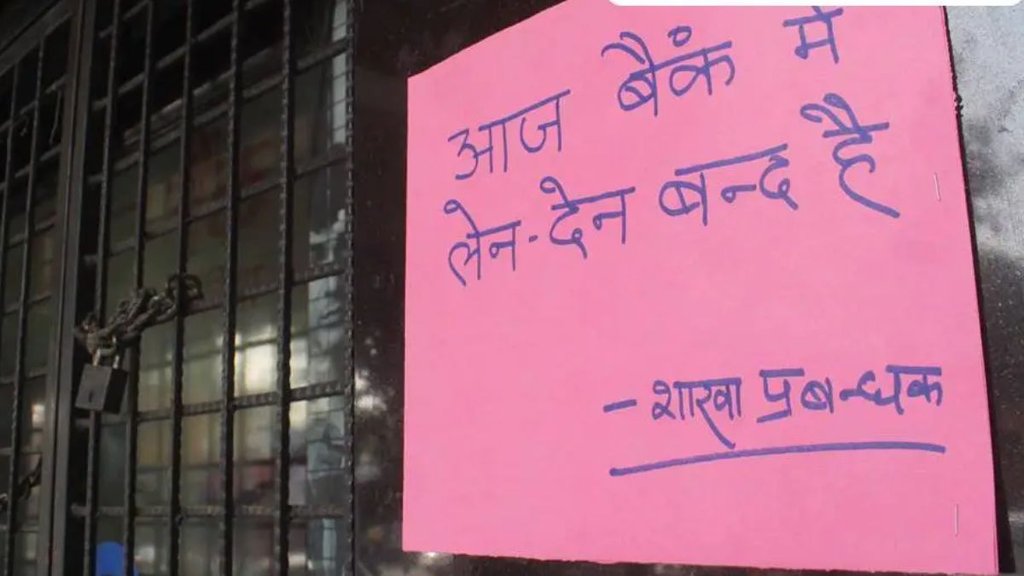 आज बैंक मे
लेन-देन बन्द है
- शाखा प्रबन्धक